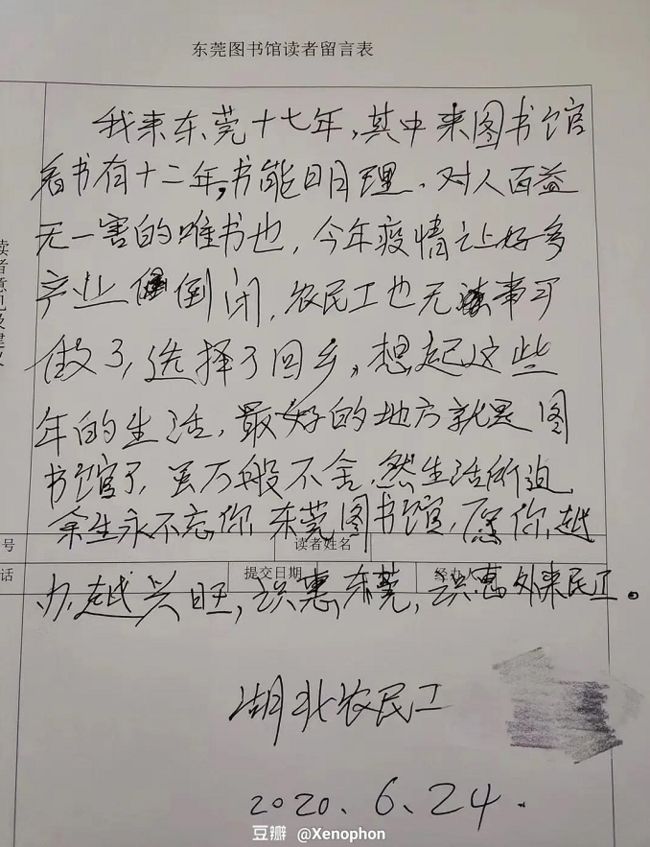 东莞图书馆读者留言表
我来东莞十七年,其中来图书馆
看书有十二年,书能明理、对人百益
无一害的唯书也,今年疫情让好多
产业倒闭,农民工也无事可
做了,选择了回乡,想起这些
年的生活,最好的地方就是图
书馆了,虽万般不舍,然生活所迫
余生永不忘你东莞图书馆,愿你越
办越兴旺,识惠东莞,识惠外来民工。
读者意见及建议
号
读者姓名
话
提交日期
经办人
湖北农民工
2020、6、24.
豆瓣 @Xenophon